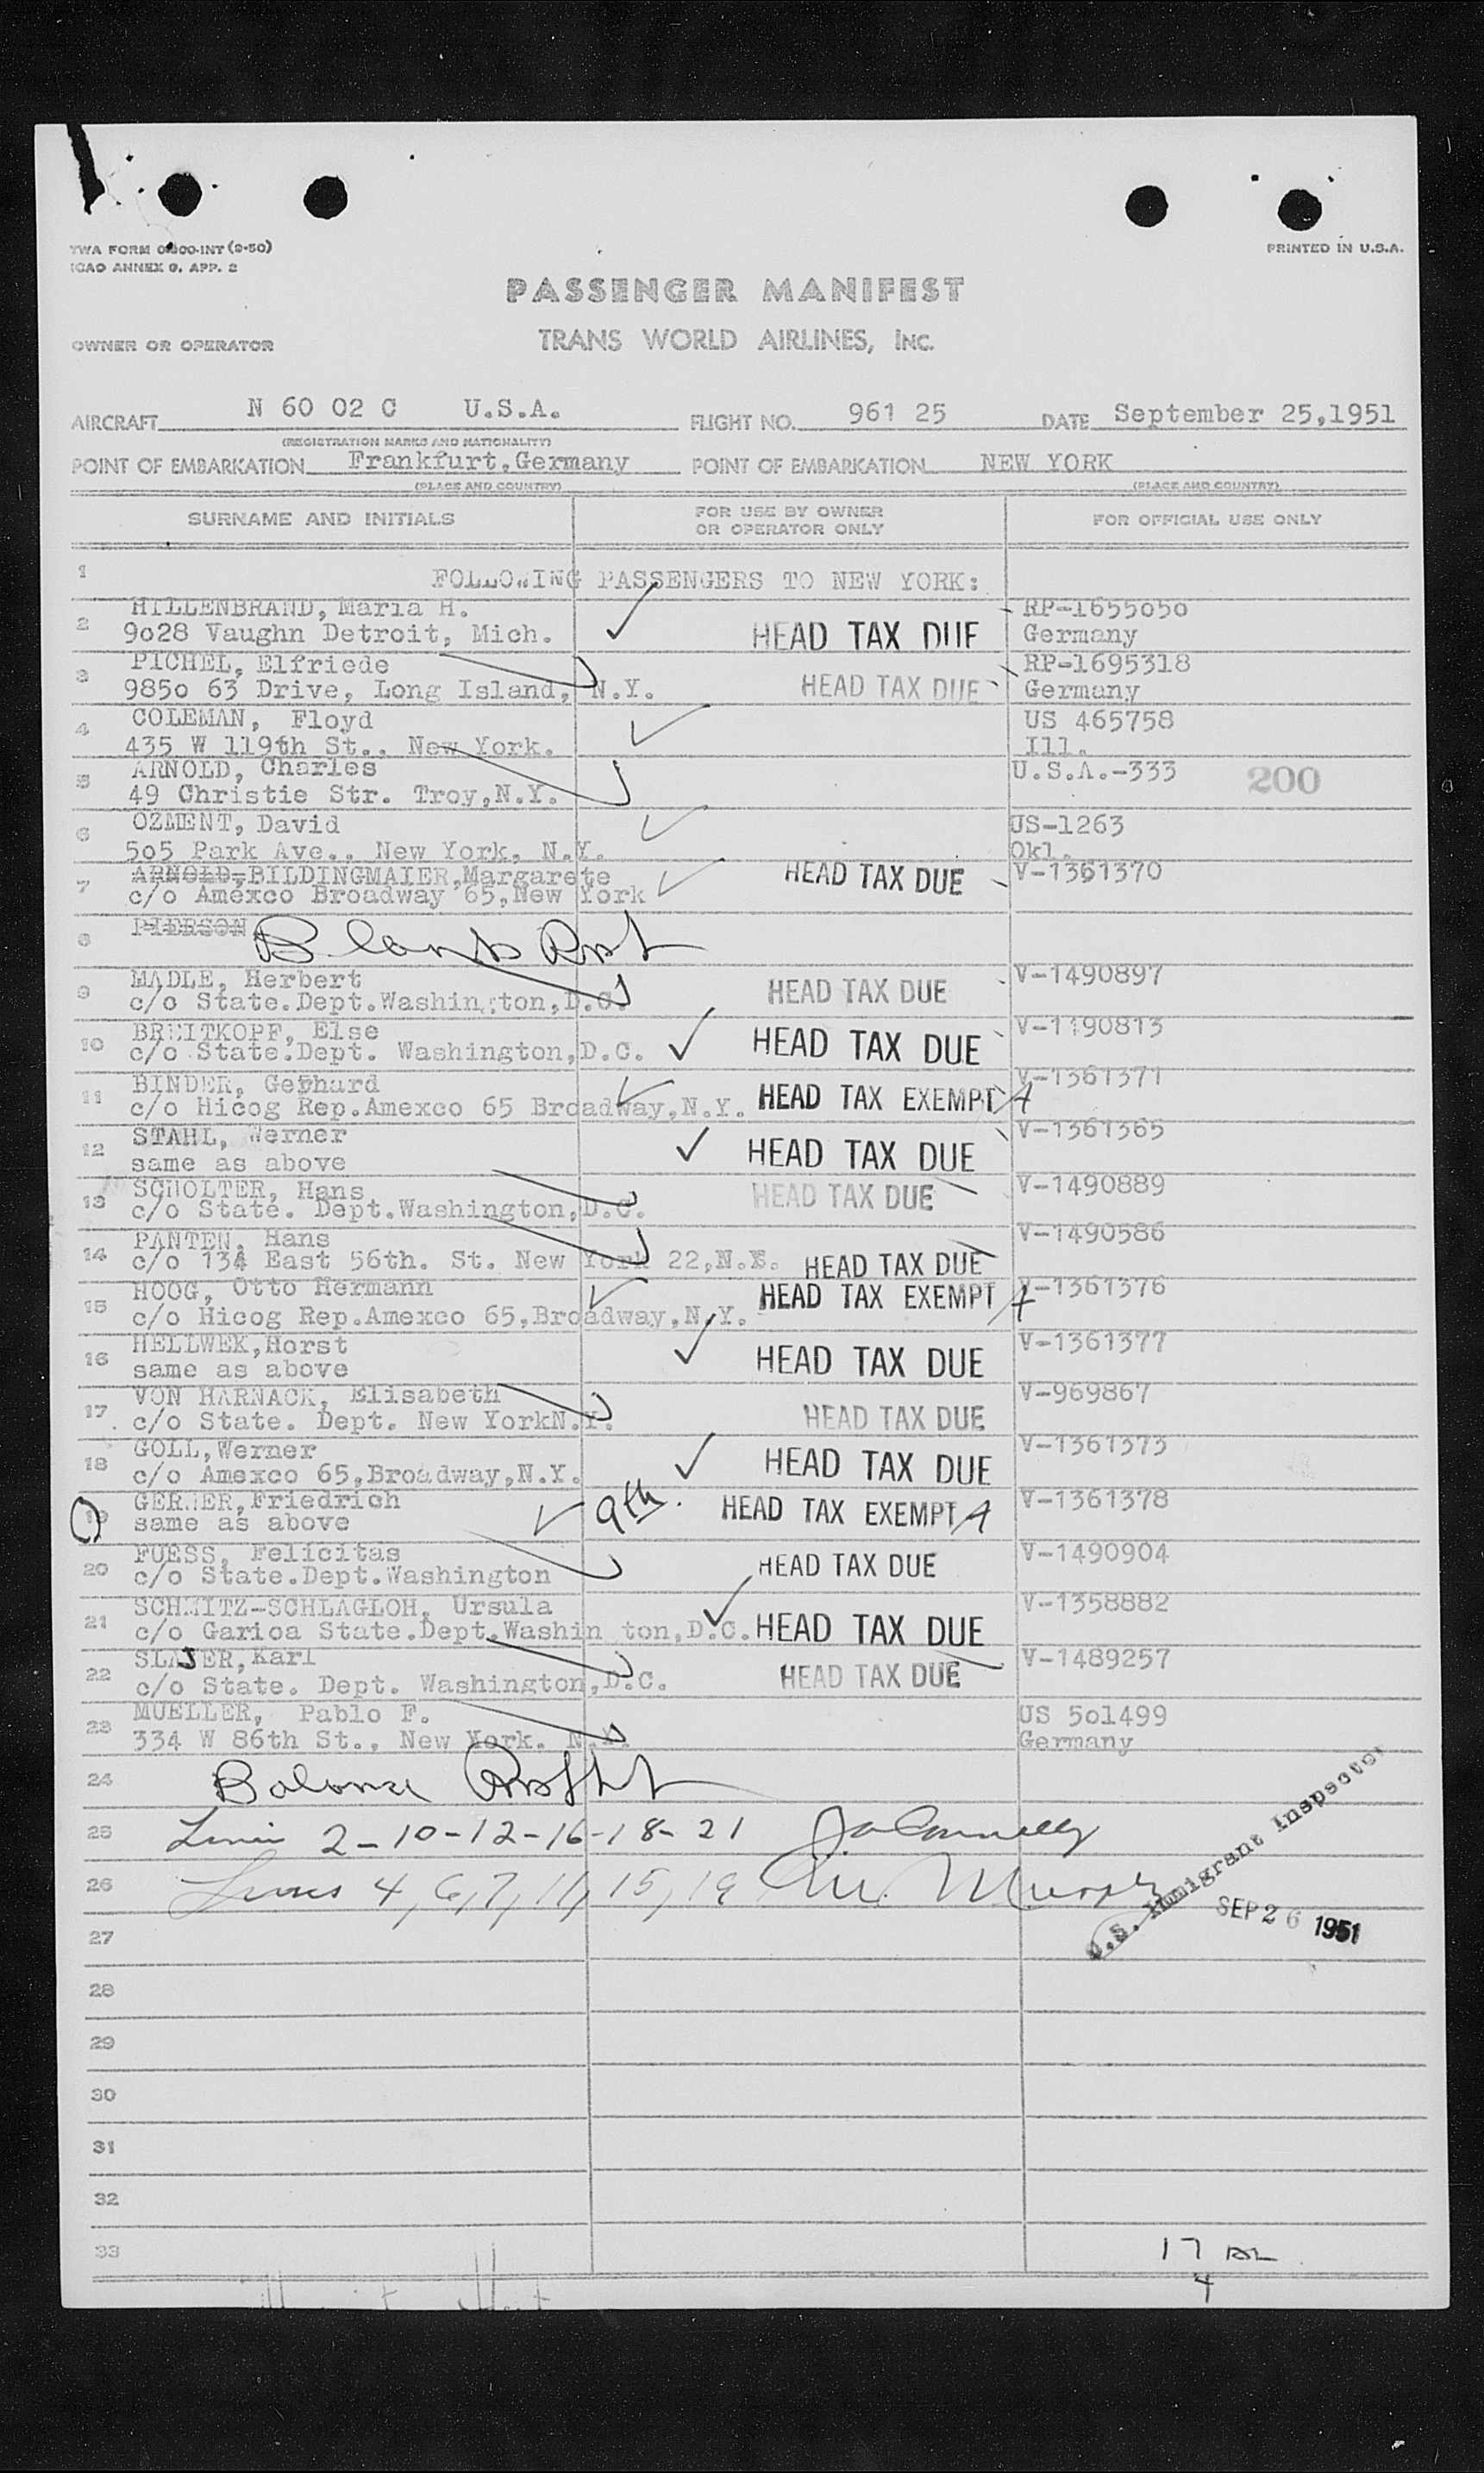 TWA FORM 0800-INT (9-50)
ICAO ANNEX 9, APP. 2
PRINTED IN U.S.A.
PASSENGER MANIFEST
OWNER OR OPERATOR
TRANS WORLD AIRLINES, INC.
AIRCRAFT N 60 02 C U.S.A. FLIGHT NO. 961 25 DATE September 25,1951
(REGISTRATION MARKS AND NATIONALITY)
POINT OF EMBARKATION Frankfurt.Germany POINT OF EMBARKATION NEW YORK
(PLACE AND COUNTRY) (PLACE AND COUNTRY)
SURNAME AND INITIALS FOR USE BY OWNER OR OPERATOR ONLY FOR OFFICIAL USE ONLY
1 FOLLOWING PASSENGERS TO NEW YORK:
2 HILLENBRAND, Maria H. RP-1655050
9028 Vaughn Detroit, Mich. HEAD TAX DUE Germany
3 PICHEL, Elfriede RP-1695318
9850 63 Drive, Long Island, N.Y. HEAD TAX DUE Germany
4 COLEMAN, Floyd US 465758
435 W 119th St., New York. Ill.
5 ARNOLD, Charles U.S.A.-333 200
49 Christie Str. Troy,N.Y.
6 OZMENT, David US-1263
505 Park Ave., New York, N.Y. Okl.
7 ARNOLD, BILDINGMAIER,Margarete HEAD TAX DUE V-1361370
c/o Amexco Broadway 65,New York
8 PIERSON
9 MADLE, Herbert V-1490897
c/o State.Dept.Washington,D.C. HEAD TAX DUE
10 BREITKOPF, Else V-1190813
c/o State.Dept. Washington,D.C. HEAD TAX DUE
11 BINDER, Gerhard V-1361371
c/o Hicog Rep.Amexco 65 Broadway,N.Y. HEAD TAX EXEMPT A
12 STAHL, Werner V-1361365
same as above HEAD TAX DUE
13 SCHOLTER, Hans V-1490889
c/o State. Dept.Washington,D.C. HEAD TAX DUE
14 PANTEN, Hans V-1490586
c/o 134 East 56th. St. New York 22,N.Y. HEAD TAX DUE
15 HOOG, Otto Hermann HEAD TAX EXEMPT A V-1361376
c/o Hicog Rep.Amexco 65,Broadway,N.Y.
16 HELLWEK,Horst V-1361377
same as above HEAD TAX DUE
17 VON HARNACK, Elisabeth V-969867
c/o State. Dept. New YorkN.Y. HEAD TAX DUE
18 GOLL,Werner V-1361373
c/o Amexco 65,Broadway,N.Y. HEAD TAX DUE
19 GERNER,Friedrich V-1361378
same as above 9th. HEAD TAX EXEMPT A
20 FUESS, Felicitas V-1490904
c/o State.Dept.Washington HEAD TAX DUE
21 SCHMITZ-SCHLAGLOH, Ursula V-1358882
c/o Garioa State.Dept.Washin ton,D.C. HEAD TAX DUE
22 SLAJER,Karl V-1489257
c/o State. Dept. Washington,D.C. HEAD TAX DUE
23 MUELLER, Pablo F. US 501499
334 W 86th St., New York. N.Y. Germany
24 Balance
25 2-10-12-16-18-21
26 Lines 4, 6, 7, 11, 15, 19 Murphy
U.S. Immigrant Inspector
SEP 26 1951
27
28
29
30
31
32
33
17
4